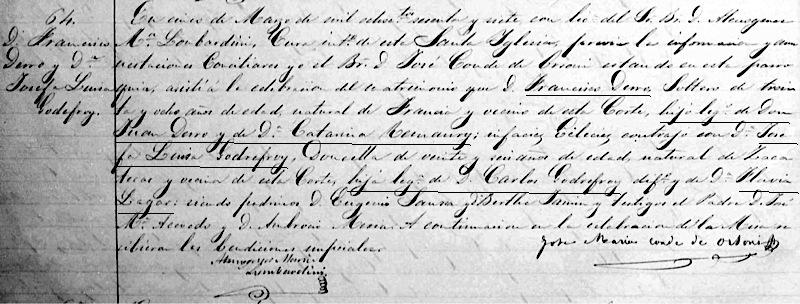 64.
D. Francisco
Derro y D.ª
Josefa Luisa
Godefroy.
En cinco de Marzo de mil ochos.tos sesenta y siete, con lic.ª del Sr. Br. D. Almogenes
M.ª Lombardini, Cura int.º de esta Santa Iglesia, previa la informacion y amo
nestaciones Conciliares yo el Br. D. José Conde de estando en esta parro
quia, asistí a la celebracion del matrimonio que D. Francisco Derro, Soltero de trein
ta y ocho años de edad, natural de Francia y vecino de esta Corte, hijo leg.º de Don
Juan Derro y de D.ª Catarina infacie Eclecie, contrajo con D.ª Jose
fa Luisa Godefroy, Doncella de veinte y seis años de edad, natural de Zaca
tecas y vecina de esta Corte, hija leg.ª de D. Carlos Godefroy dif.to y de D.ª Flavia
Lagar: siendo padrinos D. Eugenio y Berthe y testigos el Padre D. José
M.ª Acevedo y D. Ambrocio A continuacion en la celebracion de la Misa re
cibieron las bendiciones nupciales.
José Maria Conde de
Lombardini